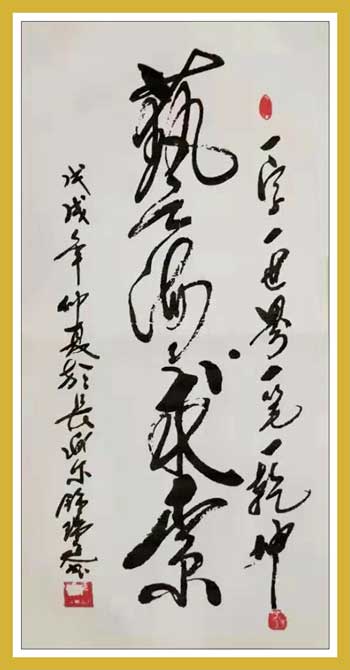 一字一世界一笔一乾坤
藝海求索
戊戌年仲夏於長城